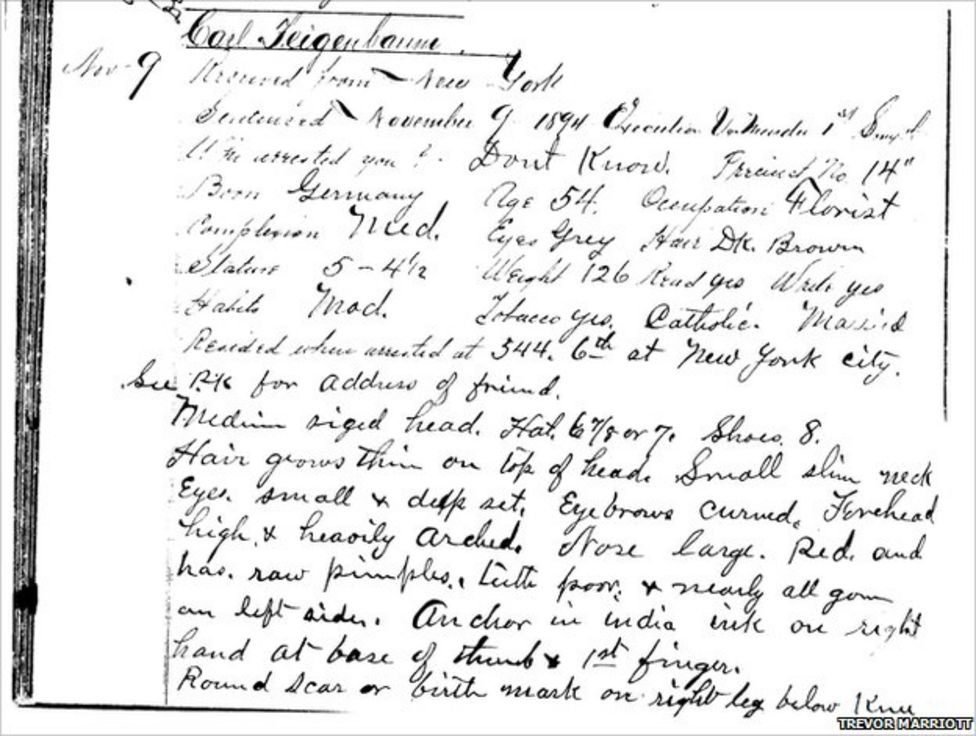 Carl Feigenbaum.
Nov 9 Received from New York
Sentenced November 9 1894 Execution Murder 1st
arrested you? Dont Know. Precinct No. 14"
Born Germany Age 54. Occupation Florist
Complexion Med. Eyes Grey Hair DK. Brown
Stature 5-4 1/2 Weight 126 Read yes Write yes
Habits Mod. Tobacco yes. Catholic. Married
Resided when arrested at 544. 6th at New York city.
See BK for address of friend.
Medium siged head. Hat. 6 7/8 or 7. Shoes. 8.
Hair grows thin on top of head. Small slim neck
Eyes. small & deep set. Eyebrows curved. Forehead
high. & heavily Arched. Nose large. Red. and
has. raw pimples. teeth poor. & nearly all gone
on left side. Anchor in india ink on right
hand at base of thumb & 1st finger.
Round scar or birth mark on right leg below Knee
TREVOR MARRIOTT